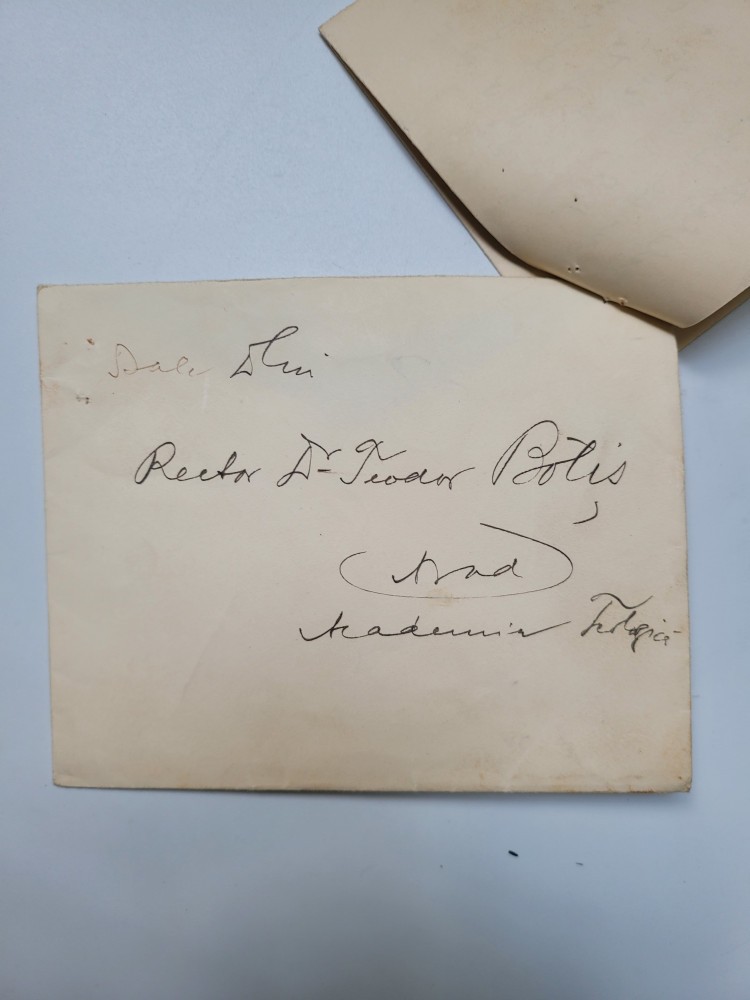 Sale Dlui
Rector Dr. Teodor Botiș
Arad
Academia Teologică